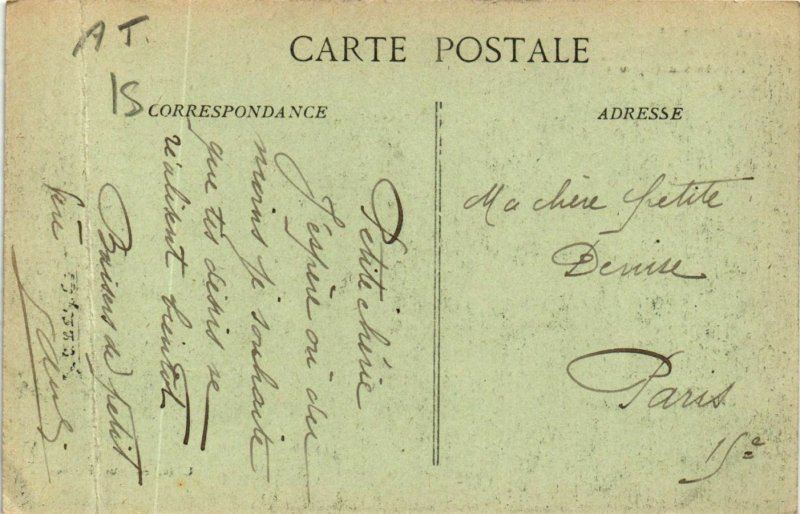 A T.
15
CARTE POSTALE
CORRESPONDANCE
ADRESSE
Petite chérie
J'espère ou du
moins je souhaite
que tes désirs se
réalisent bientôt
Baisers de petit
Ma chère petite
Denise
Paris
15e